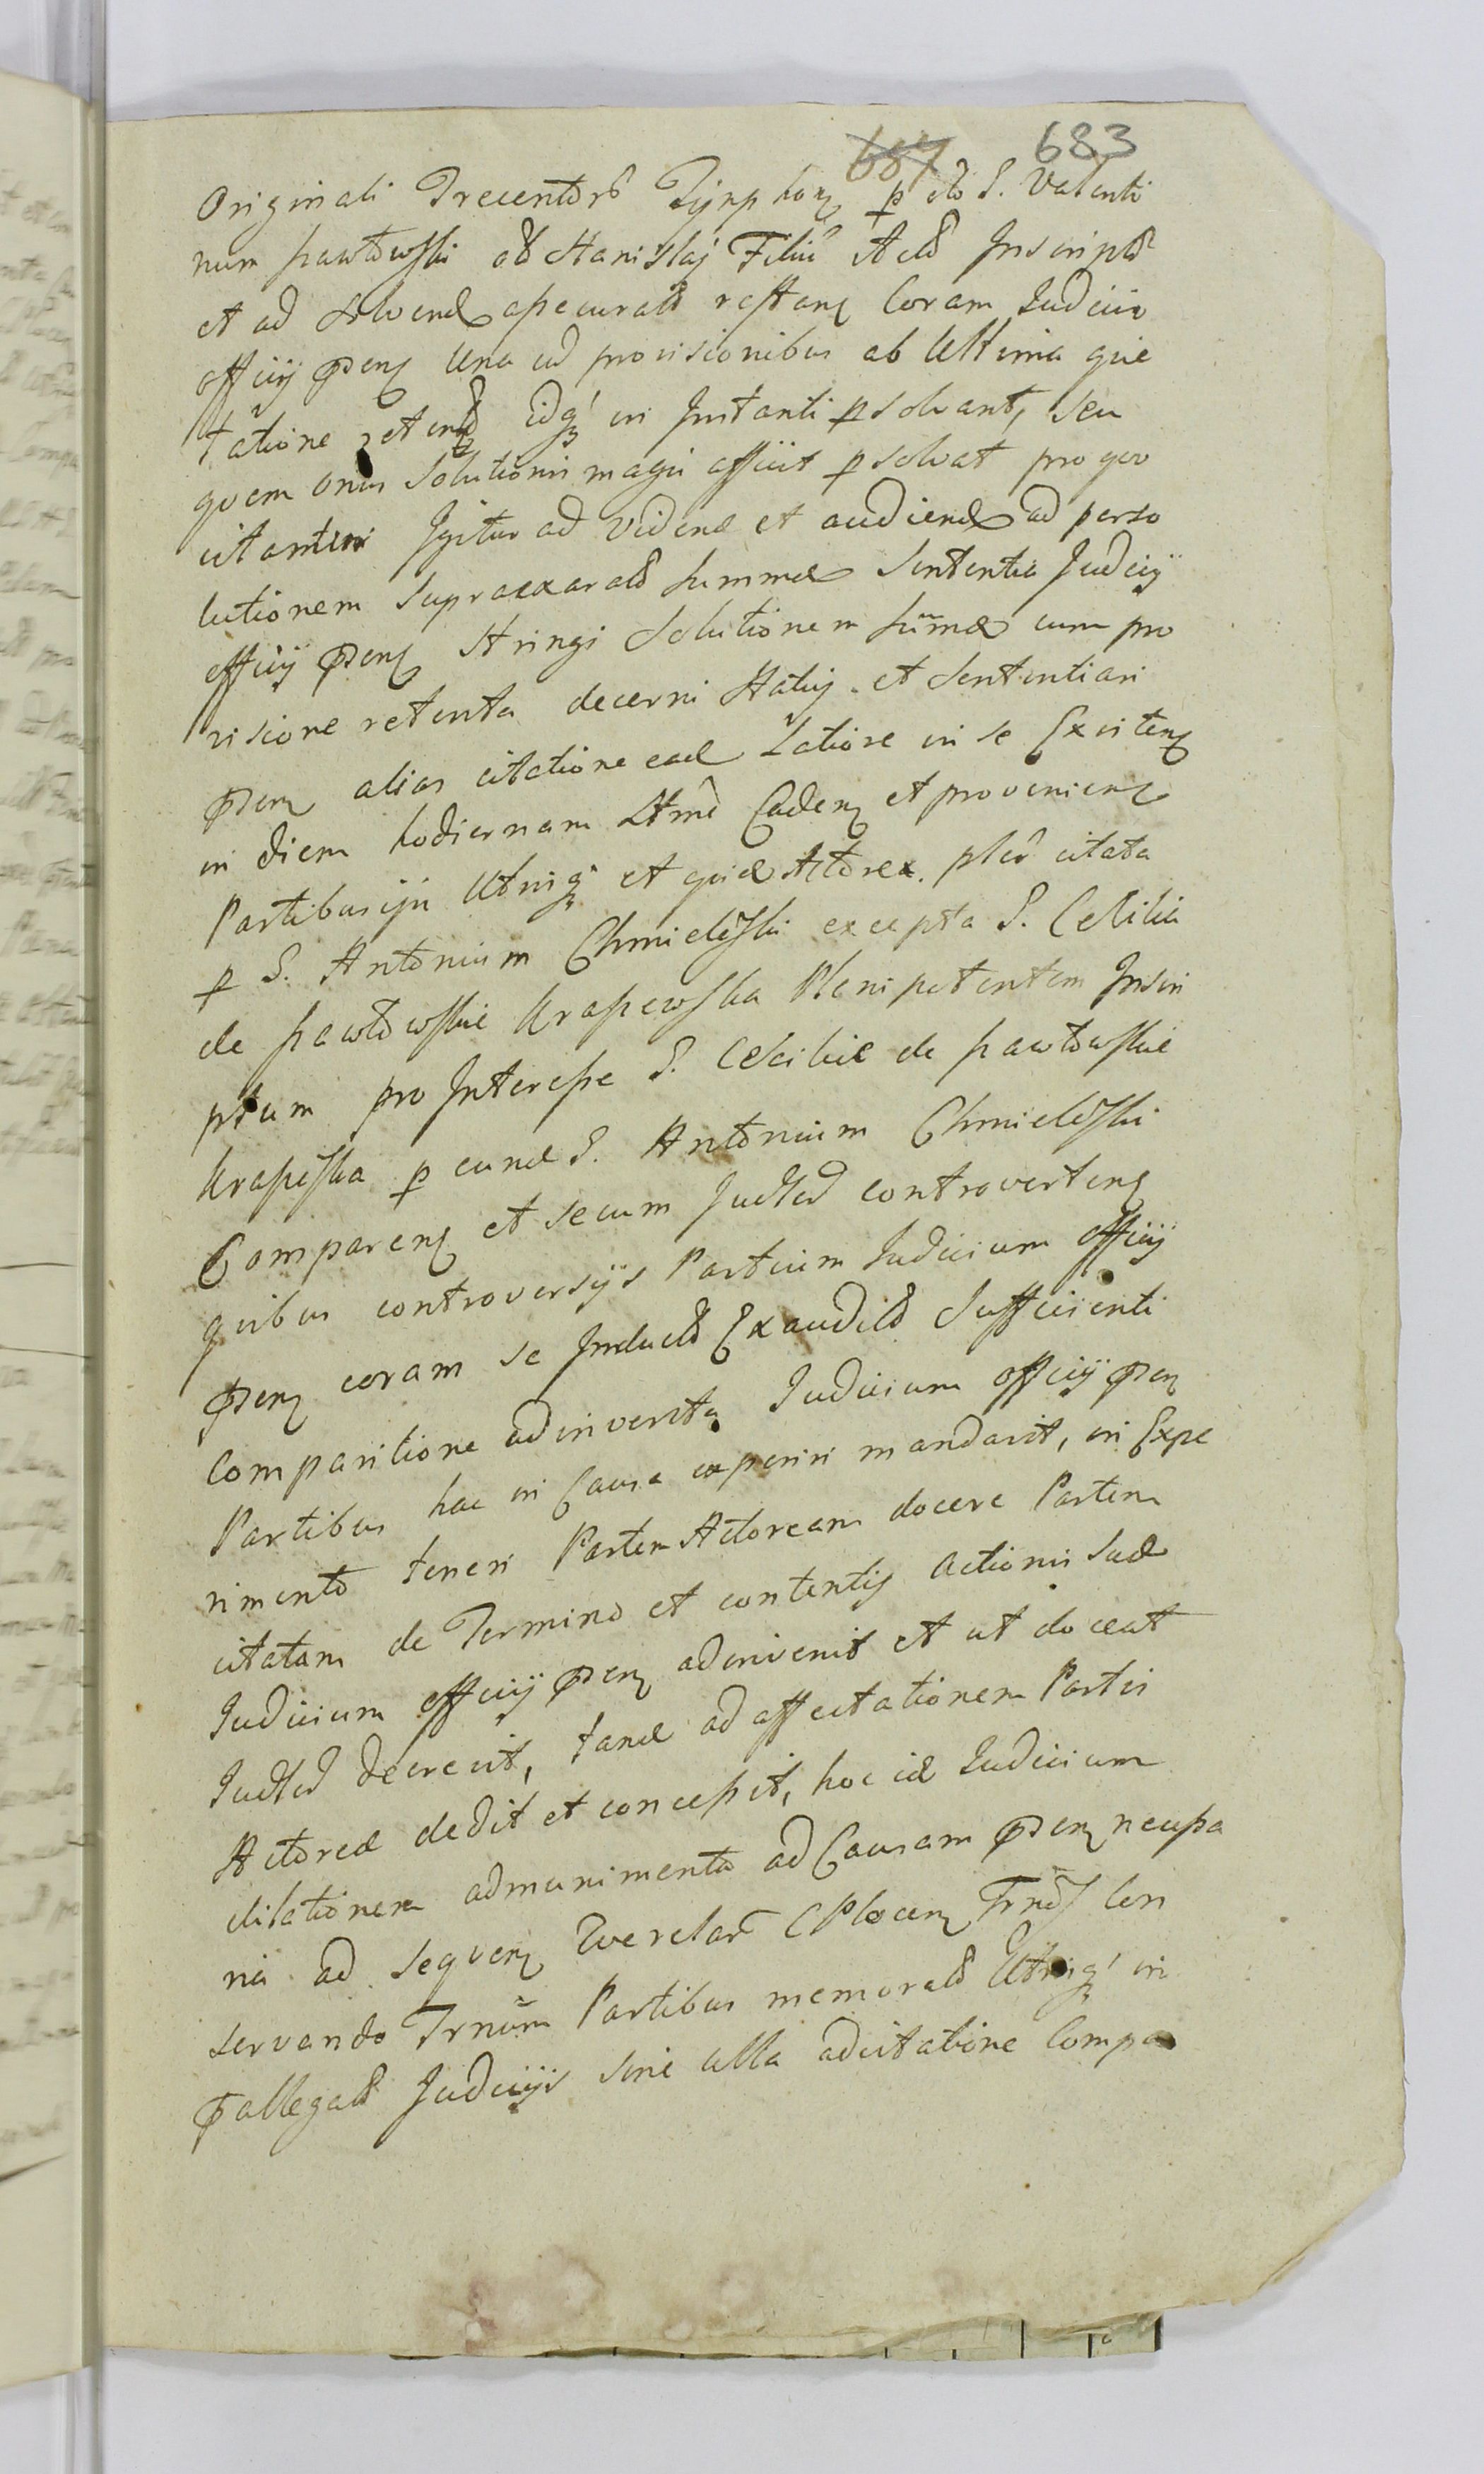 687 683
Originali Trecentorũ Tÿnphonz p olb S. Valenti
num Pawłowski olb Stanislaj Filiũ Actũ Inscriptũ
et ad solvend assecuratũ restanz Coram Judicio
officij psenz Una cũ provisionibus ab Ultima quie
tatione retentis idqz in Instanti p solvant, seu
quem onus Solutionis magis afficit p solvat pro quo
citamini Igitur ad videnđ et audienđ ad perso
lutionem Supraexaratũ Summæ Sententia Judicij
officij psenz Stringi Solutionem Sum̃æ cum pro
visione retenta decerni Statuj et Sententiari
psenz alias citatione eađ Latiore in se Existenz
in diem hodiernam Ltmẽ Cadenz et provenienz
Partibus ijs Utrisqz et quiđ Actorea. pler citata
p S. Antonium Chmielewski excepta S. Cecilia
de Pawłowskie Krajewska Plenipotentem Inscri
ptum pro Interesse S. Cecilie de Pawłowskie
Krajewska p eunđ S. Antonium Chmielewski
Comparenz et secum Judłr controvertenz
quibus controversijs Partium Judicium officij
psenz coram se Inductũ Exauditũ Sufficienti
Comparitione adinventa Judicium officij psenz
Partibus hac in Causa experiri mandavit, in Expe
rimento teneri Partem Actoream docere Partem
citatam de Termino et contentis Actionis Suæ
Judicium officij psenz adinvenit et ut doceat
Judłr decrevit, tanđ ad affectationem Partis
Actoreæ dedit et concessit, hoc iđ Judicium
dilationem admunimenta ad Causam psenz necessa
ria ad sequenz Querelarũ CPlocenz Trnoſ Con
servando Trnũm Partibus memoratũ Utrisqz in
pallegatũ Judicijs sine ulla adcitatione Compa